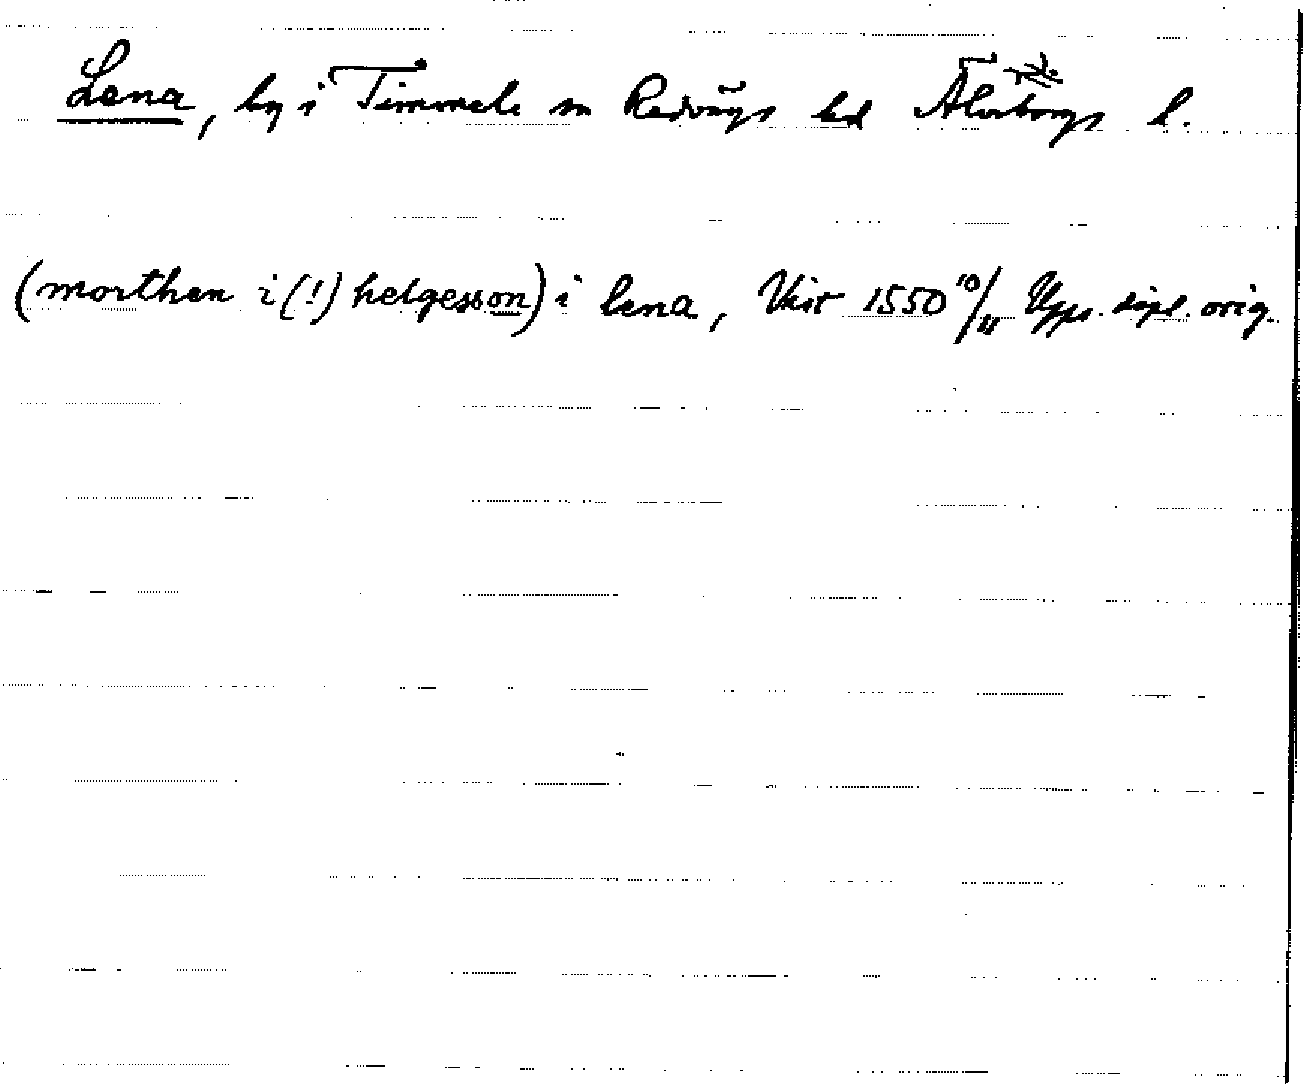 Lena, by i Timmele sn Redvägs hd Älvsborgs l.
(morthen i(!) helgesson) i lena, 1550 10/11 Upps. dipl. orig.